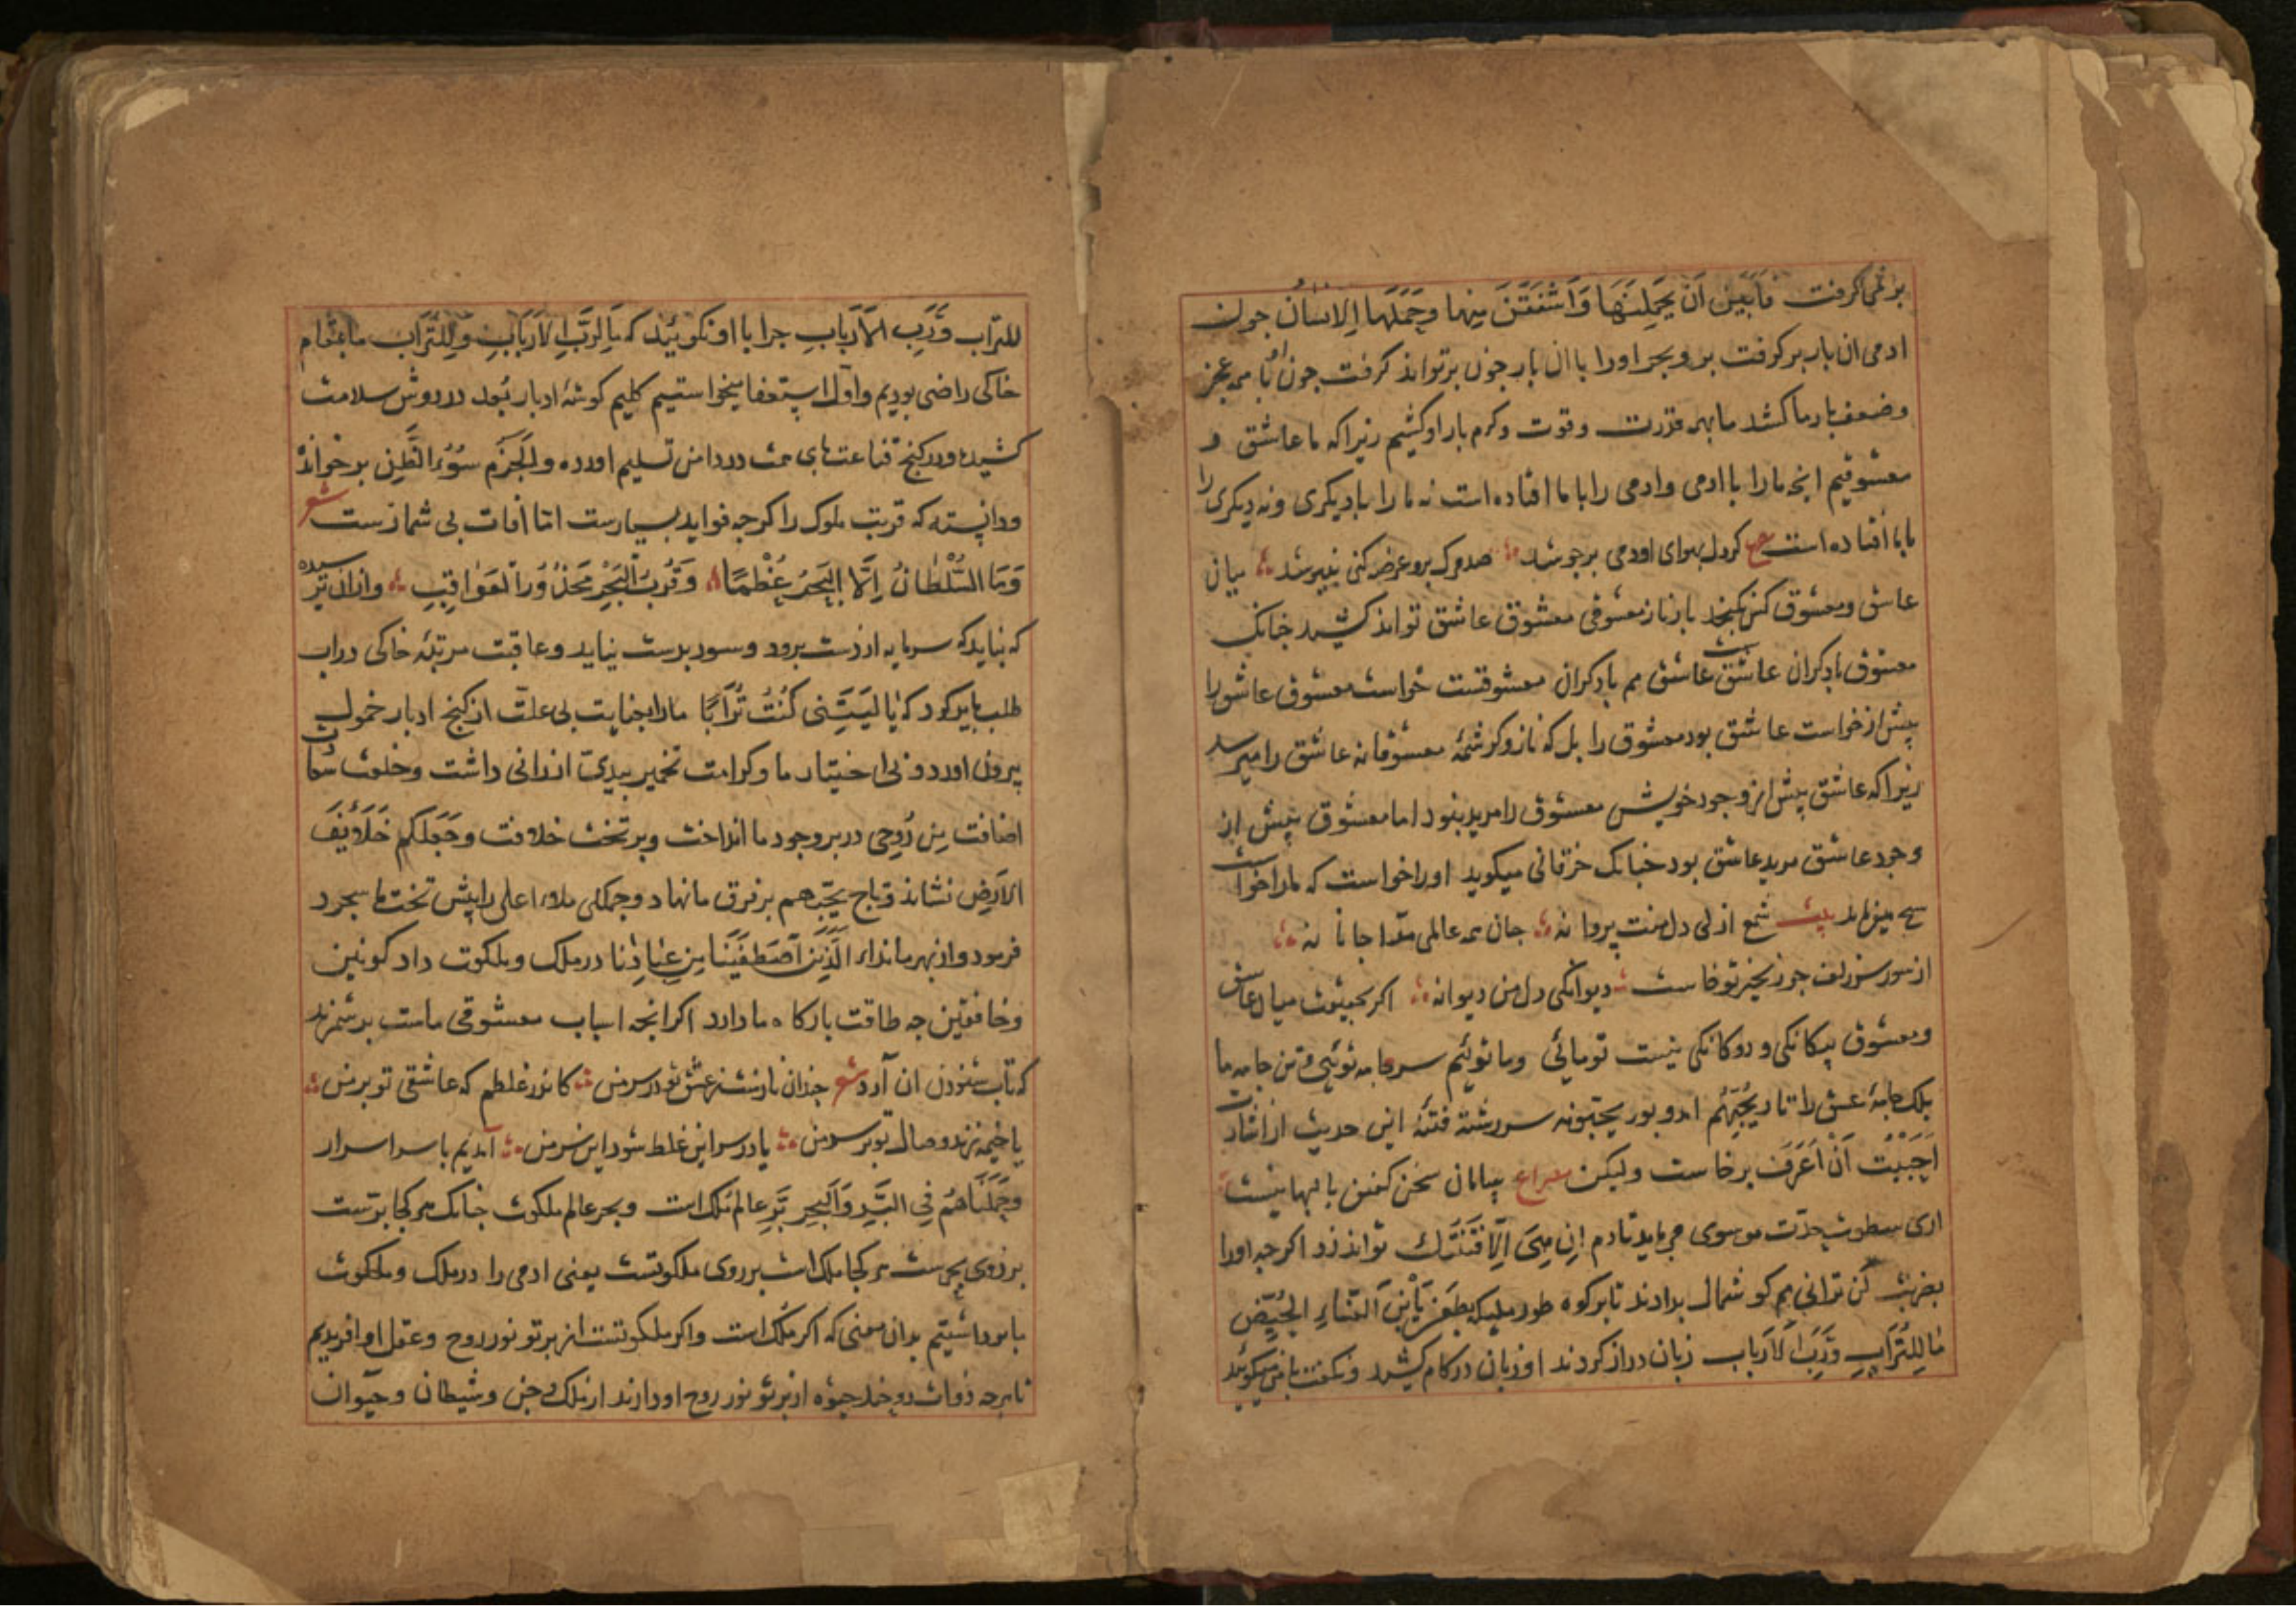 بر نمی‌گرفت فابین ان یحملنها واشفقن منها وحملها الانسان جون
ادمی ان بار برکرفت بر و بحر اورا با ان بار جون برتواند کرفت جون او با همه عجز
وضعف بار ما کشد ما بهمه قدرت وقوت وکرم بار او کشیم زیرا که ما عاشق و
معشوقیم انچه ما را با ادمی وادمی را با ما افتاده است نه ما را با دیکری ونه دیکری را
با ما افتاده است کر دل بهوای اودمی برجوشد صد مرک برو عرضه کنی نیوشد میان
عاشق ومعشوق کس نکنجد بار ناز معشوقی معشوق عاشق تواند کشید چنانک
معشوق بادکران عاشق نیست عاشق هم بادکران معشوق نیست خواست معشوق عاشق را
پیش از خواست عاشق بود معشوق را بل که ناز وکرشمه معشوقانه عاشق را میرسد
زیرا که عاشق پیش از وجود خویش معشوق را مرید نبود اما معشوق پیش از
وجود عاشق مرید عاشق بود چنانک خرقانی میکوید اورا خواست که ما را خواست
بیت شمع ازلی دل منت پروانه جان همه عالمی مرا جانانه
از شور سر زلف جو زنجیر تو خاست دیوانکی دل من دیوانه اکر بحقیقت میان عاشق
ومعشوق بیکانکی و دوکانکی نیست تو مائی وما توئیم سر جامه توئی وبن جامه ما
بلک جامه عشق را تار یحبهم امد و پود یحبونه سر رشته فتنه این حدیث از اشارت
احببت ان اعرف برخاست ولیکن مصراع بیابان سخن کفتن با بها نیست
اری سطوت حدت موسوی می باید تا دم ان هی الا فتنتک تواند زد اکرجه اورا
بضربت لن ترانی هم کوشمال بدادند تا بر کوه طور ملیکه بطعن یا بن النساء الحیض
ما للتراب ورب الارباب زبان دراز کردند او زبان در کام کشید ونکفت با من میکوئید
للتراب ورب الارباب جرا با او نکوئید که ما لرب الارباب وللتراب ما بمقام
خاکی راضی بودیم واول استعفا میخواستیم کلیم کوشه ادبار بعد در دوش سلامت
کشیده ودر کنج قناعت پای همت در دامن تسلیم اورده والحزم سوء الظن بر خوانده
ودانسته که قربت ملوک را اکرجه فواید بسیارست اما افات بی شمارست شعر
وما السلطان الا البحر عظما وقرب البحر محذور العواقب وازان ترسیده
که نباید که سرمایه از دست برود وسود بدست نیاید وعاقبت مرتبه خاکی دران
طلب باید کرد که یا لیتنی کنت ترابا مارا بعنایت بی علت از کنج ادبار خمول
بیرون اورد و بی اختیار ما وکرامت تخمیر بیدی ارزانی داشت وخلعت
اضافت من روحی در بر وجود ما انداخت وبر تخت خلافت وجعلکم خلائف
الارض نشاند وتاج یحبهم بر فرق ما نهاد وجملکی ملاء اعلی را پیش تخت ما سجود
فرمود واز بهر ما نداء الذین اصطفینا من عبادنا در ملک وملکوت داد کونین
وخافقین جه طاقت بارکاه ما دارد اکر انجه اسباب معشوقی ماست بر شمرند
که تاب شنودن ان آرد شعر جندان نازست ز عشق تو در سر من کاندر غلطم که عاشقی تو بر من
یا خیمه زند وصال تو بر سر من یا در سر این غلط شود این سر من آمدیم با سر اسرار
وحملناهم فی البر والبحر بر عالم ملک است وبحر عالم ملکوت چنانک هر کجا برست
بر روی بحرست هر کجا ملک است بر روی ملکوتست یعنی ادمی را در ملک وملکوت
ما برداشتیم بدان معنی که اکر ملک است واکر ملکوتست از پرتو نور روح وعقل او افریدیم
تا هر جه ذوات روحند جیوه از پرتو نور روح او دارند از ملک وجن وشیطان وحیوان